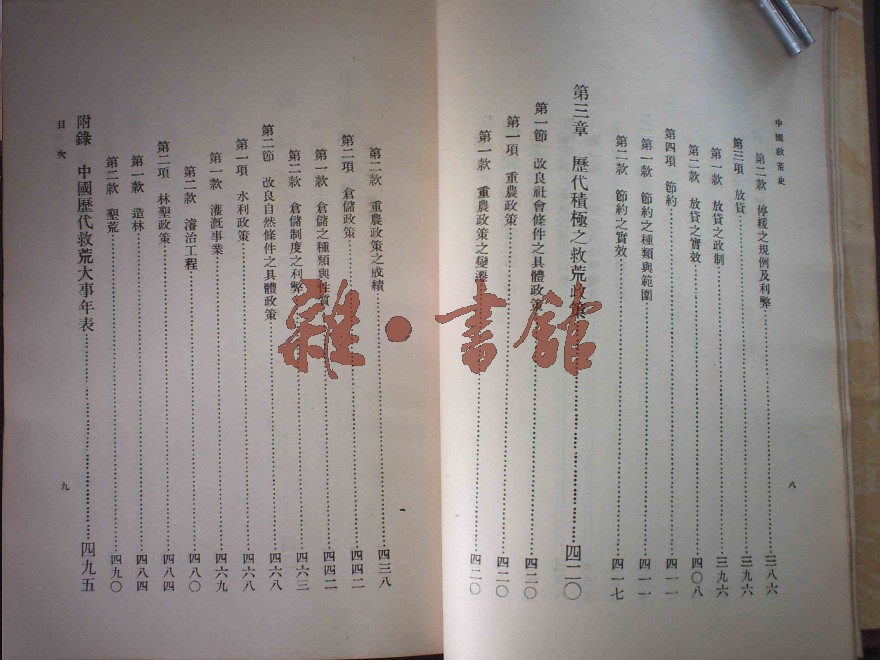 中國救荒史
第二款　停緩之規例及利弊……三八六
第三項　放貸……三九六
第一款　放貸之政制……三九六
第二款　放貸之實效……四〇八
第四項　節約……四一一
第一款　節約之種類與範圍……四一一
第二款　節約之實效……四一七
第三章　歷代積極之救荒政策……四二〇
第一節　改良社會條件之具體政策……四二〇
第一項　重農政策……四二〇
第一款　重農政策之變遷……四二〇
八
第二款　重農政策之成績……四三八
第二項　倉儲政策……四四二
第一款　倉儲之種類與性質……四四二
第二款　倉儲制度之利弊……四六三
第二節　改良自然條件之具體政策……四六八
第一項　水利政策……四六八
第一款　灌溉事業……四六九
第二款　濬治工程……四八〇
第二項　林墾政策……四八四
第一款　造林……四八四
第二款　墾荒……四九〇
附錄　中國歷代救荒大事年表……四九五
目次
九
雜·書館